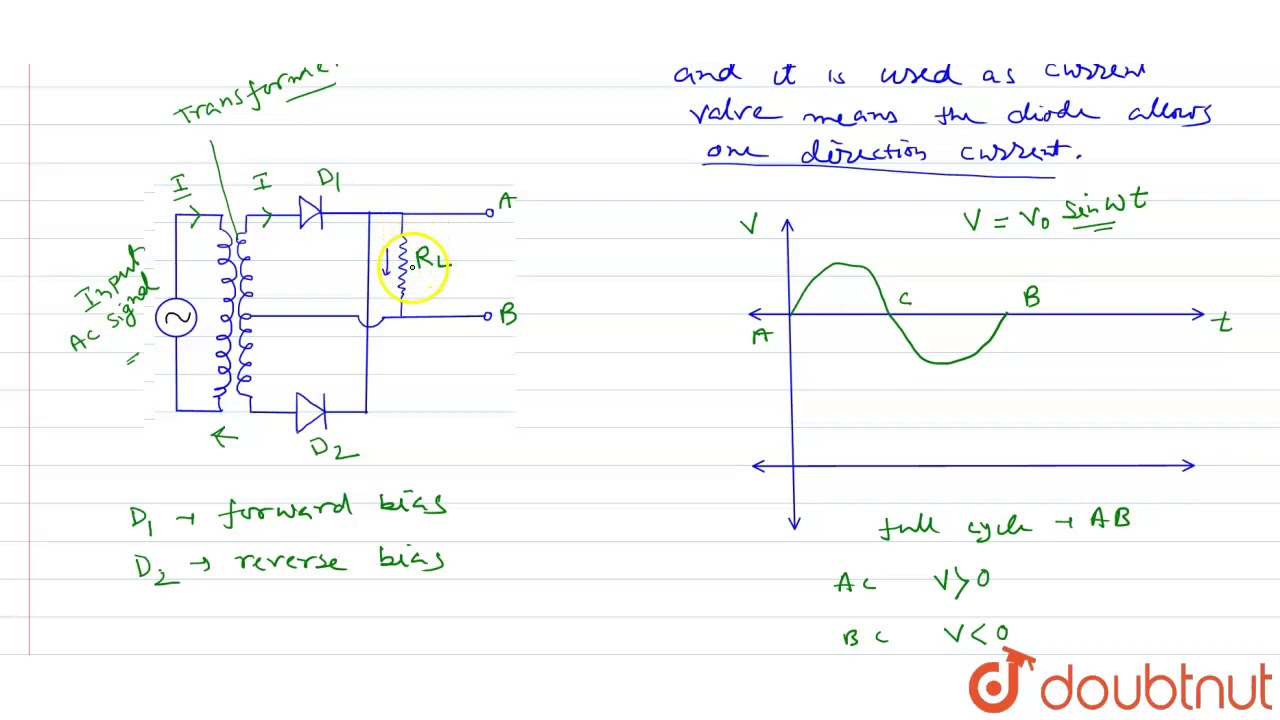 Transforme.
I
I
D1
A
Input
AC signal
=
RL
B
D2
D1 → forward bias
D2 → reverse bias
and it is used as current
valve means the diode allows
one direction current.
V = V0 sinωt
V
A
C
B
t
full cycle → AB
AC V>0
BC V<0
doubtnut